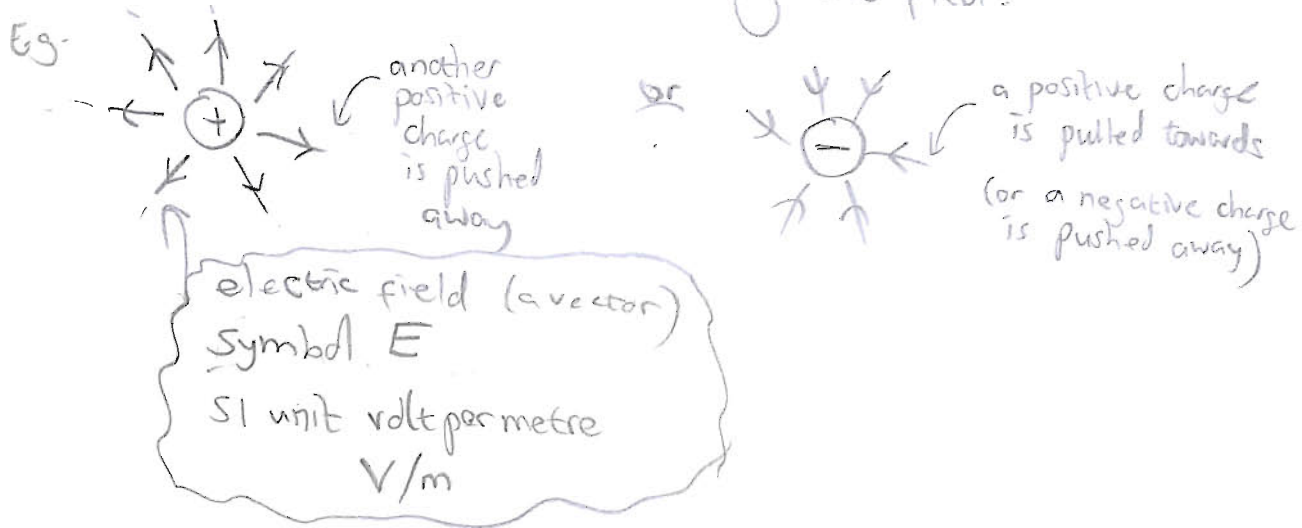 Eg.
+
another
positive
charge
is pushed
away
or
−
a positive charge
is pulled towards
(or a negative charge
is pushed away)
electric field (a vector)
symbol E
SI unit volt per metre
V/m